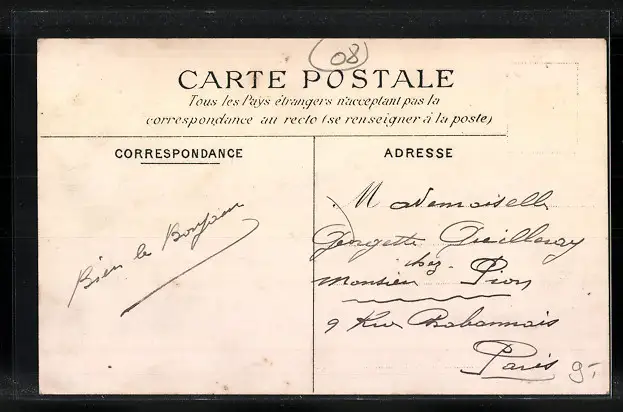 08
CARTE POSTALE
Tous les Pays étrangers n'acceptant pas la
correspondance au recto (se renseigner à la poste)
CORRESPONDANCE
ADRESSE
Bien le Bonjour
Mademoiselle
Georgette
chez
Monsieur Pion
9 Rue Chabannais
Paris
9-